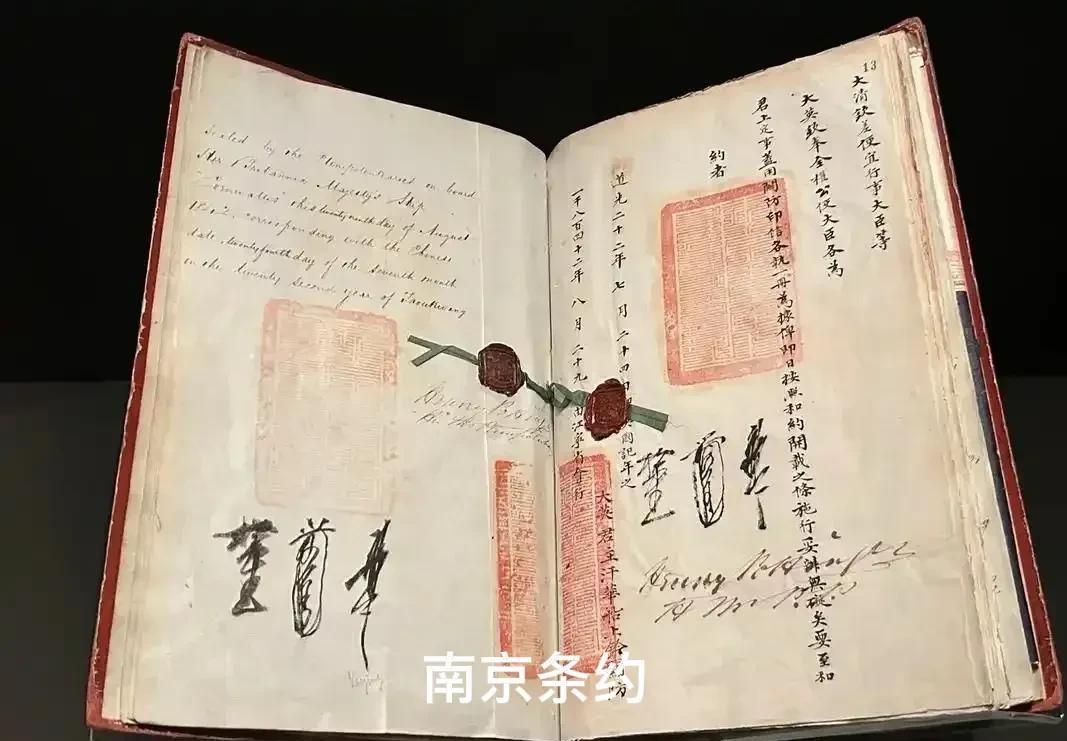 Sealed by the Plenipotentiaries on board
Her Britannic Majesty's Ship
Cornwallis this twenty ninth day of August
1842, corresponding with the Chinese
date, twenty fourth day of the seventh month
in the twenty second year of Taoukwang
Henry Pottinger
13
大清欽差便宜行事大臣等
大英欽奉全權公使大臣各為
君上定事蓋用關防印信各執一冊為據俾即日按照和約開載之條施行妥辦無礙矣要至和
約者
道光二十二年七月二十四日即英國記年之
一千八百四十二年八月二十九日由江寧省會行
大英君主汗華船上鈐關防
Henry Pottinger
南京条约